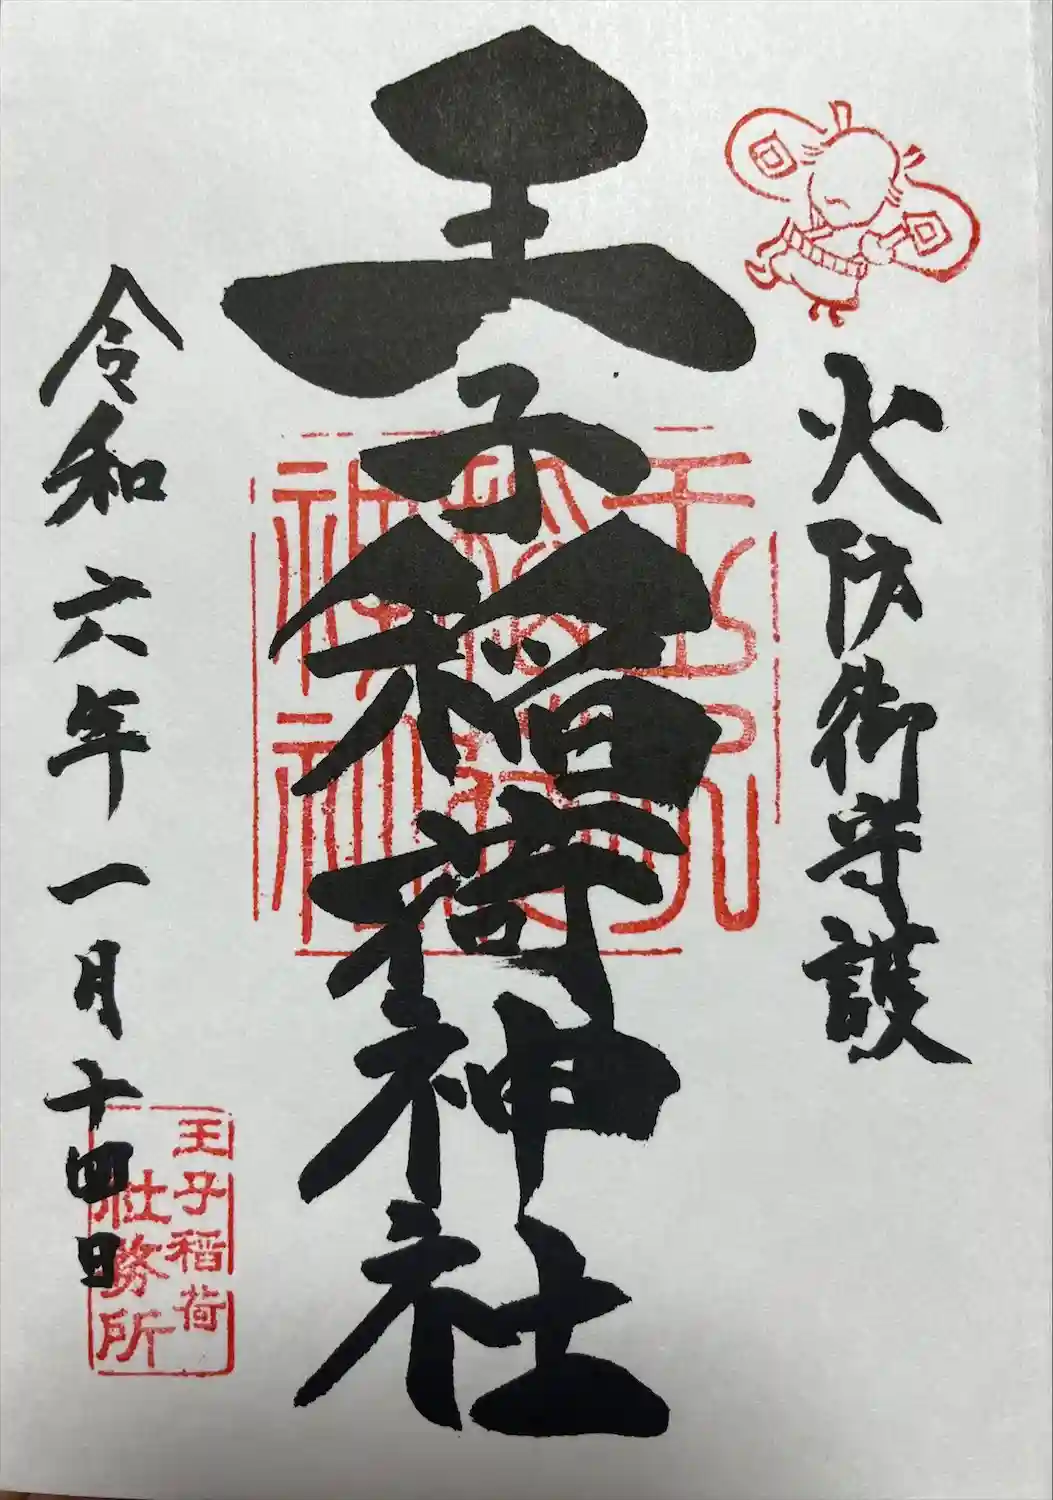 火防御守護
王子稲荷神社
王子稲荷神社
令和六年一月十四日
王子稲荷
社務所